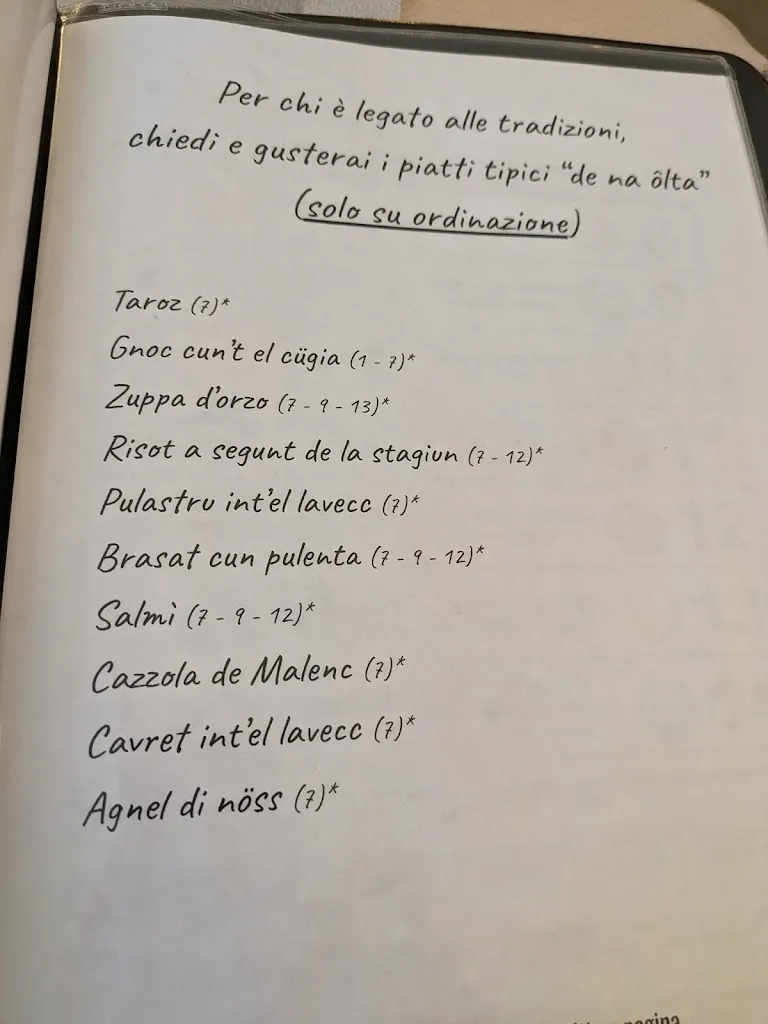 Per chi è legato alle tradizioni,
chiedi e gusterai i piatti tipici “de na ôlta”
(solo su ordinazione)
Taroz (7)*
Gnoc cun't el cügia (1 - 7)*
Zuppa d'orzo (7 - 9 - 13)*
Risot a segunt de la stagiun (7 - 12)*
Pulastru int'el lavecc (7)*
Brasat cun pulenta (7 - 9 - 12)*
Salmì (7 - 9 - 12)*
Cazzola de Malenc (7)*
Cavret int'el lavecc (7)*
Agnel di nöss (7)*
pagina